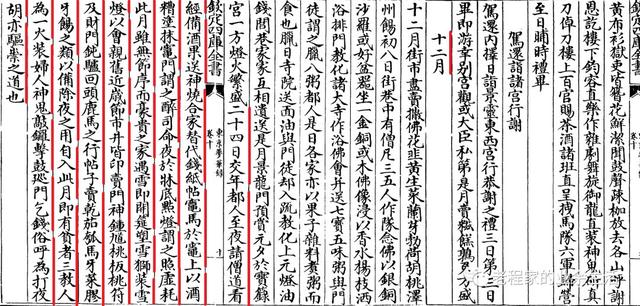 黃布衫獄吏皆簪花鮮潔聞鼓聲疎枷放去各山呼謝
恩訖樓下鈞容直樂作雜劇舞旋御龍直裝神鬼斫真
刀倬刀樓上百官賜茶酒諸班直呈拽馬隊六軍歸營
至日晡時禮畢
駕還詣諸宮行謝
駕還內擇日詣景靈東西宮行恭謝之禮三日第三日
畢即游幸别宮觀或大臣私第是月賣糍糕鶉兔方盛
十二月
十二月街市盡賣撒佛花韭黃生菜蘭芽勃荷胡桃澤
州餳初八日街巷中有僧尼三五人作隊念佛以銀銅
沙羅或好盆器坐一金銅或木佛像浸以香水楊枝洒
浴排門教化諸大寺作浴佛會并送七寶五味粥與門
徒謂之臘八粥都人是日各家亦以果子雜料煮粥而
食也臘日寺院送面油與門徒却入疏教化上元燈油
欽定四庫全書
卷十
東京夢華錄
錢閭巷家家互相遺送是月景龍門預賞元夕於寶籙
宮一方燈火繁盛二十四日交年都人至夜請僧道看
經備酒果送神燒合家替代錢紙帖竈馬於竈上以酒
糟塗抹竈門謂之醉司命夜於牀底點燈謂之照虛耗
此月雖無節序而豪貴之家遇雪即開筵塑雪獅裝雪
燈以會親舊近歲節市井皆印賣門神鍾馗桃板桃符
及財門鈍驢回頭鹿馬之行帖子賣乾茄瓠馬牙菜膠
牙餳之類以備除夜之用自入此月即有貧者三教人
為一火裝婦人神鬼敲鑼擊鼓巡門乞錢俗呼為打夜
胡亦驅祟之道也